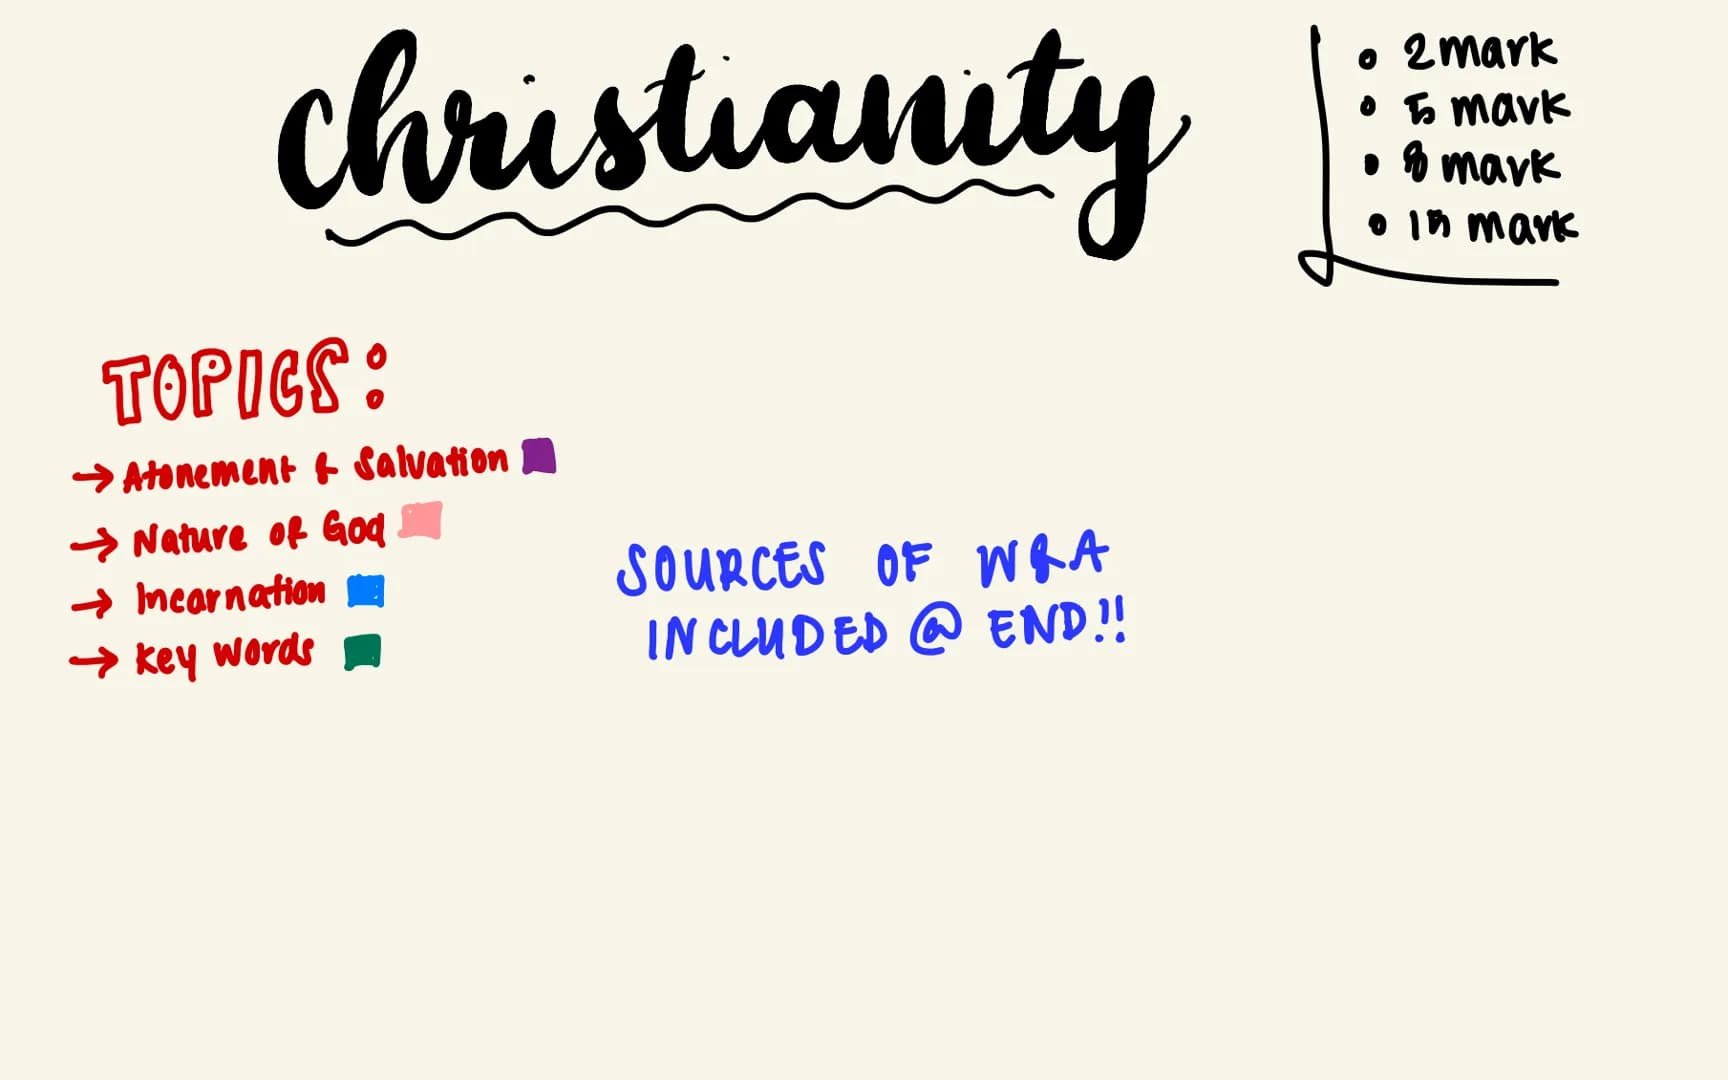 Christianity
• 2 mark
• 5 mark
• 8 mark
• 15 mark
TOPICS:
→ Atonement & Salvation
→ Nature of God
→ Incarnation
→ Key Words
SOURCES OF W&A
INCLUDED @ END!!